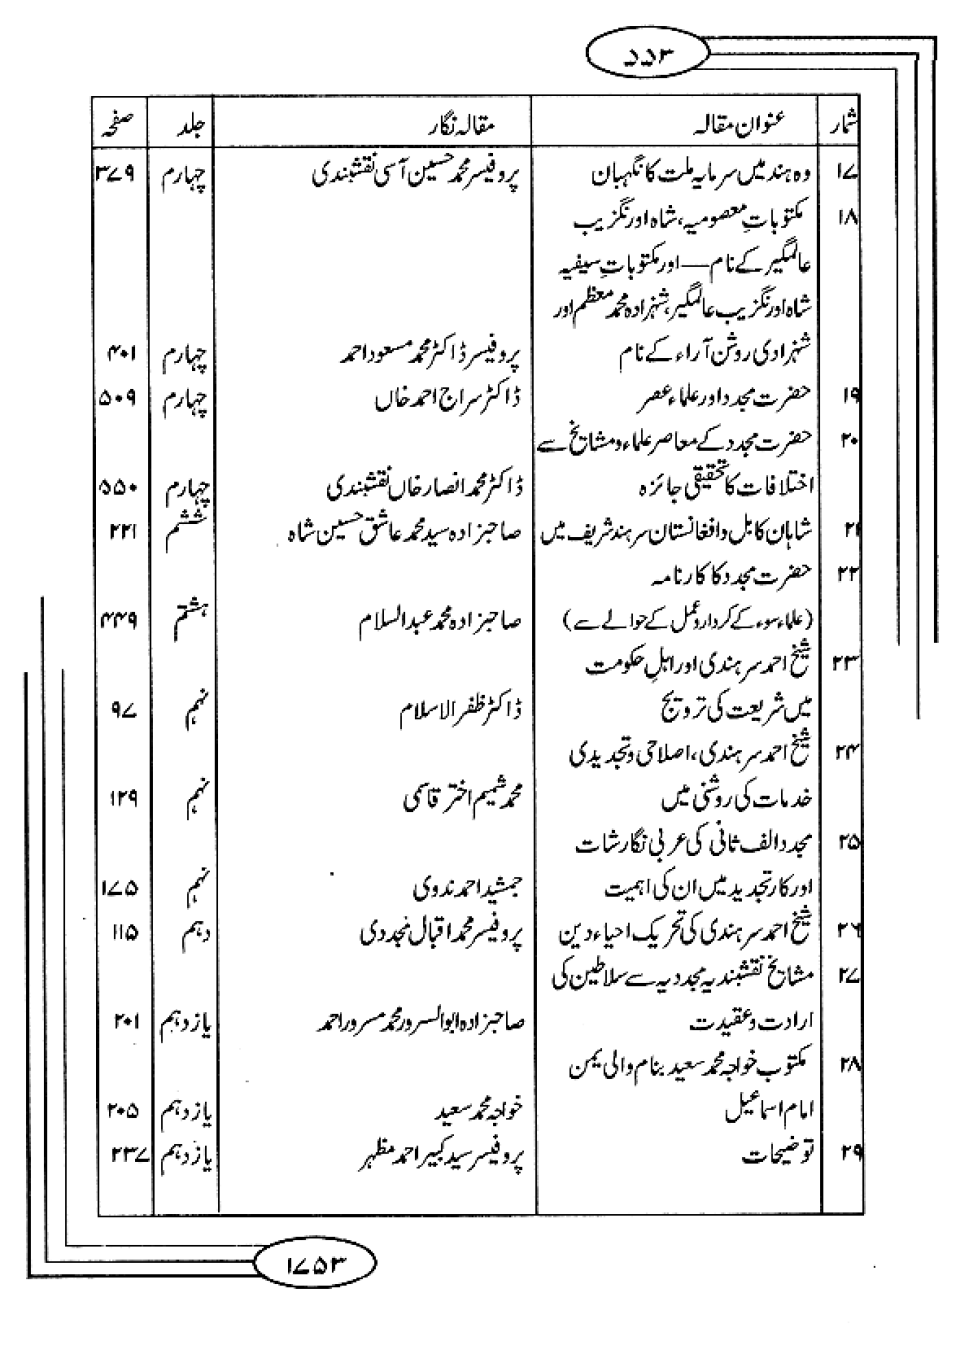 ۵۵۳
شمار عنوان مقالہ مقالہ نگار جلد صفحہ
۱۷ وہ ہند میں سرمایہ ملت کا نگہبان پروفیسر محمد حسین آسی نقشبندی چہارم ۳۷۹
۱۸ مکتوباتِ معصومیہ، شاہ اورنگزیب
عالمگیر کے نام — اور مکتوباتِ سیفیہ
شاہ اورنگزیب عالمگیر، شہزادہ محمد معظم اور
شہزادی روشن آراء کے نام پروفیسر ڈاکٹر محمد مسعود احمد چہارم ۴۰۱
۱۹ حضرت مجدد اور علماء عصر ڈاکٹر سراج احمد خاں چہارم ۵۰۹
۲۰ حضرت مجدد کے معاصر علماء و مشایخ سے
اختلافات کا تحقیقی جائزہ ڈاکٹر محمد انصار خاں نقشبندی چہارم ۵۵۰
۲۱ شاہان کابل و افغانستان سرہند شریف میں صاحبزادہ سید محمد عاشق حسین شاہ ششم ۲۲۱
۲۲ حضرت مجدد کا کارنامہ
(علماء سوء کے کردار و عمل کے حوالے سے) صاحبزادہ محمد عبدالسلام ہشتم ۴۴۹
۲۳ شیخ احمد سرہندی اور اہلِ حکومت
میں شریعت کی ترویج ڈاکٹر ظفر الاسلام نہم ۹۷
۲۴ شیخ احمد سرہندی، اصلاحی و تجدیدی
خدمات کی روشنی میں محمد شمیم اختر قاسمی نہم ۱۲۹
۲۵ مجدد الف ثانی کی عربی نگارشات
اور کار تجدید میں ان کی اہمیت جمشید احمد ندوی نہم ۱۷۵
۲۶ شیخ احمد سرہندی کی تحریک احیاء دین پروفیسر محمد اقبال مجددی دہم ۱۱۵
۲۷ مشایخ نقشبندیہ مجددیہ سے سلاطین کی
ارادت و عقیدت صاحبزادہ ابوالسرور محمد مسرور احمد یازدہم ۲۰۱
۲۸ مکتوب خواجہ محمد سعید بنام والی یمن
امام اسماعیل خواجہ محمد سعید یازدہم ۲۰۵
۲۹ توضیحات پروفیسر سید کبیر احمد مظہر یازدہم ۲۳۷
۱۷۵۳